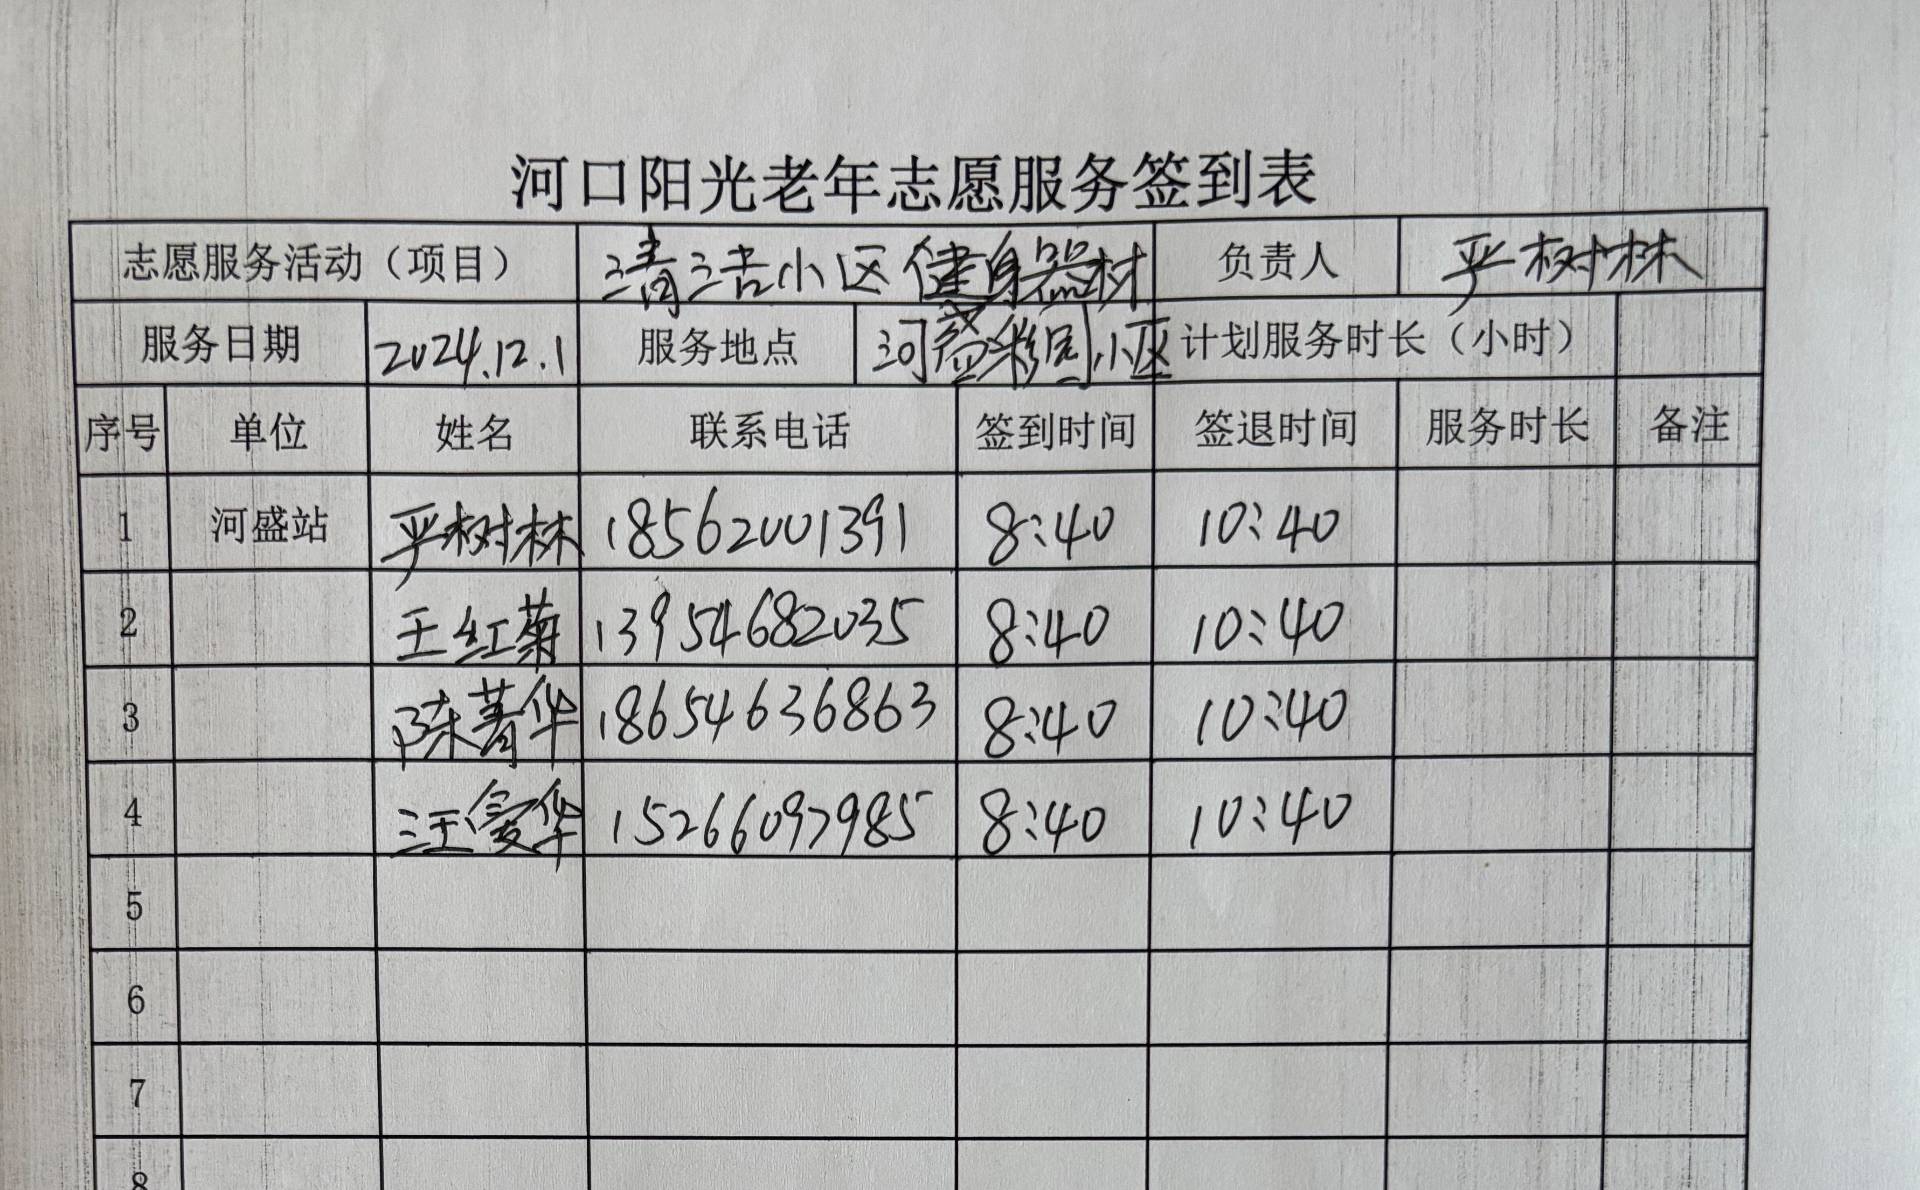 河口阳光老年志愿服务签到表
志愿服务活动（项目） 清洁小区健身器材 负责人 严树林
服务日期 2024.12.1 服务地点 河盛彩园小区 计划服务时长（小时）
序号 单位 姓名 联系电话 签到时间 签退时间 服务时长 备注
1 河盛站 严树林 18562001391 8:40 10:40
2 王红菊 13954682035 8:40 10:40
3 陈菁华 18654636863 8:40 10:40
4 汪爱华 15266097985 8:40 10:40
5
6
7
8